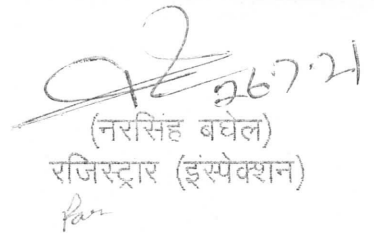 26.7.21
(नरसिंह बघेल)
रजिस्ट्रार (इंस्पेक्शन)